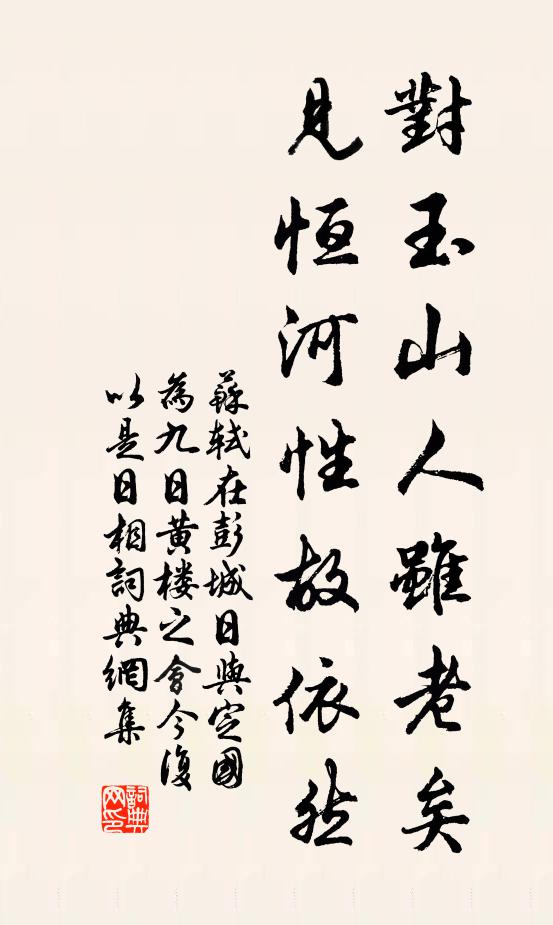 對玉山人雖老矣
見恒河性故依然
蘇軾在彭城日與定國
為九日黄楼之會今復
以是日相詞典網集
詞典
网印